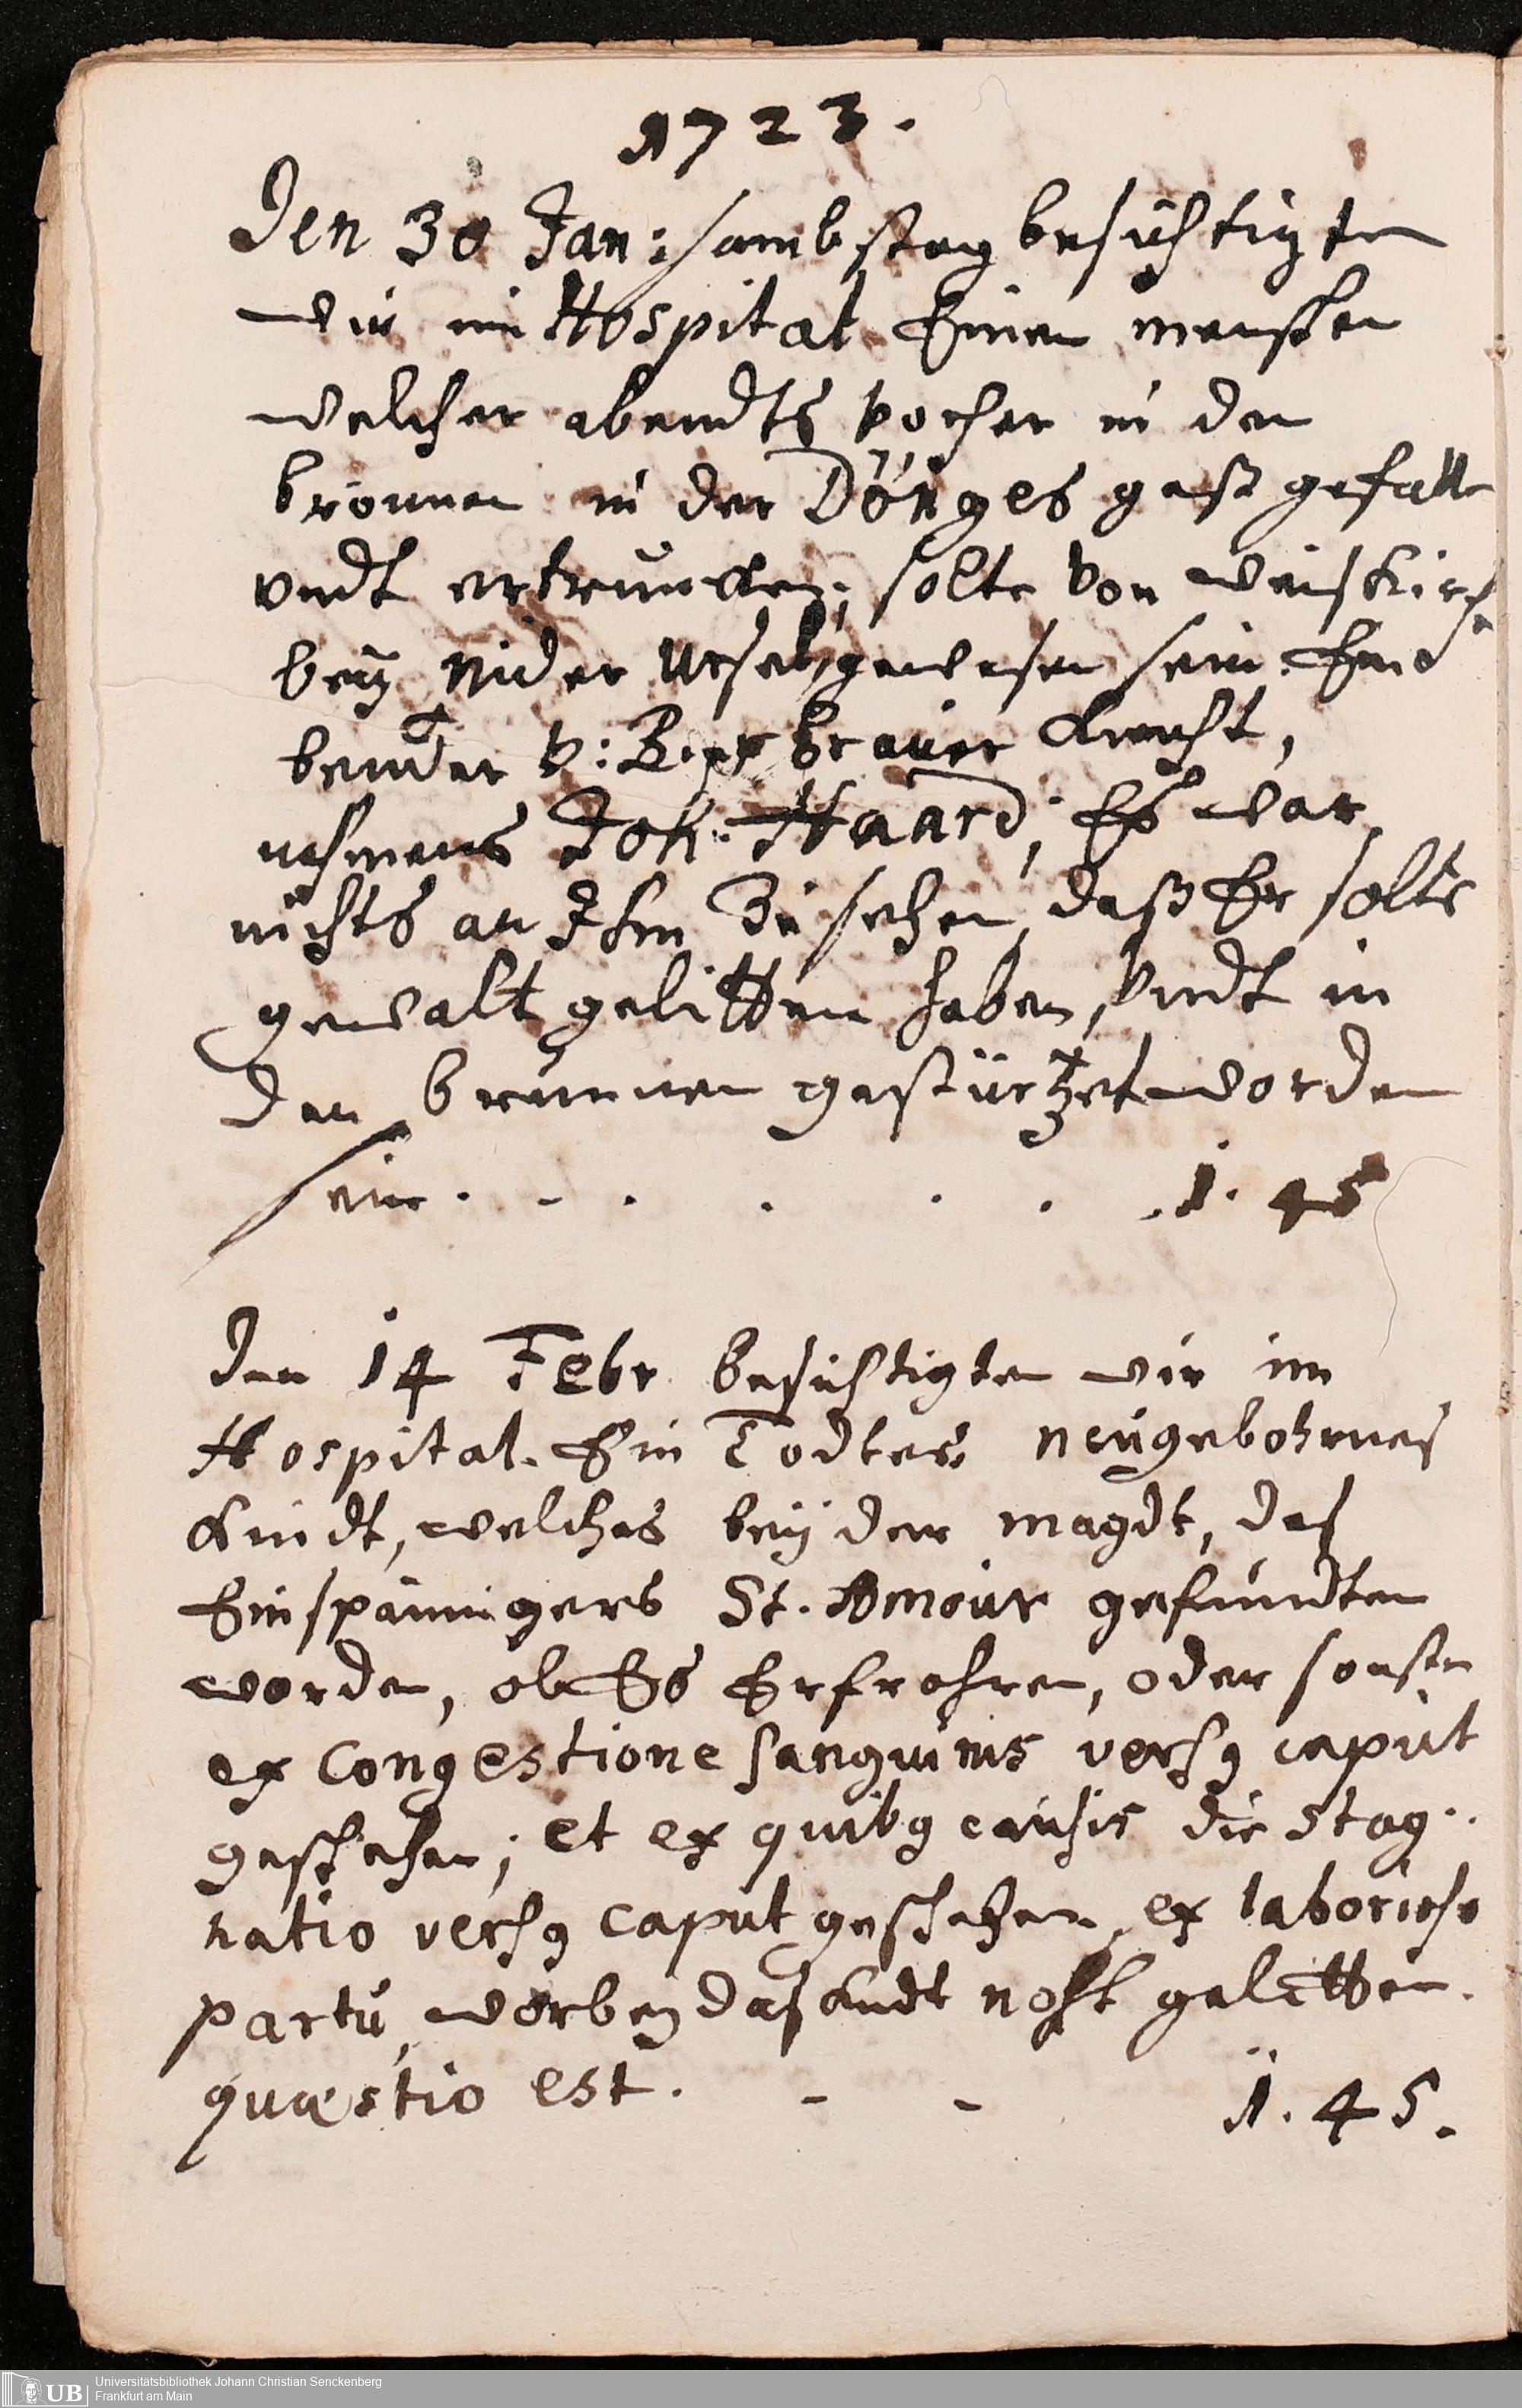 1723.
Den 30 Jan: sambstag besichtigten
wir im Hospital Einen menschen
welcher abendts vorher in den
bronnen in der Dönges gaß gefallen
undt ertruncken; solte von weiskirchen
bey Nider Ursel gewesen sein. Ein
bender v: Bier brauer Knecht,
nahmens Joh: Haard; Es war
nichts an Ihm Zu sehen, daß Er solte
gewalt gelitten haben, Undt in
den brunnen gestürtzet worden
sein. - . . . . . 1. 45
Den 14 Febr besichtigten wir im
Hospital. Ein Todtes neugebohrnes
Kindt, welches beÿ der magdt, des
Einspännigers St. Amour gefundten
worden, ob Es Erfrohren, oder sonsten
ex Congestione sanguinis versq caput
geschehen; et ex quibq causis die Stag:
natio versq caput geschehen, ex laborioso
partu, worbey das Kindt noht gelitten.
quæstio est. - - 1. 45.
UB Universitätsbibliothek Johann Christian Senckenberg
Frankfurt am Main